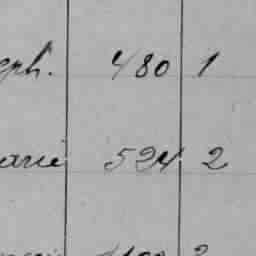 eph. 480 1
arie 524 2